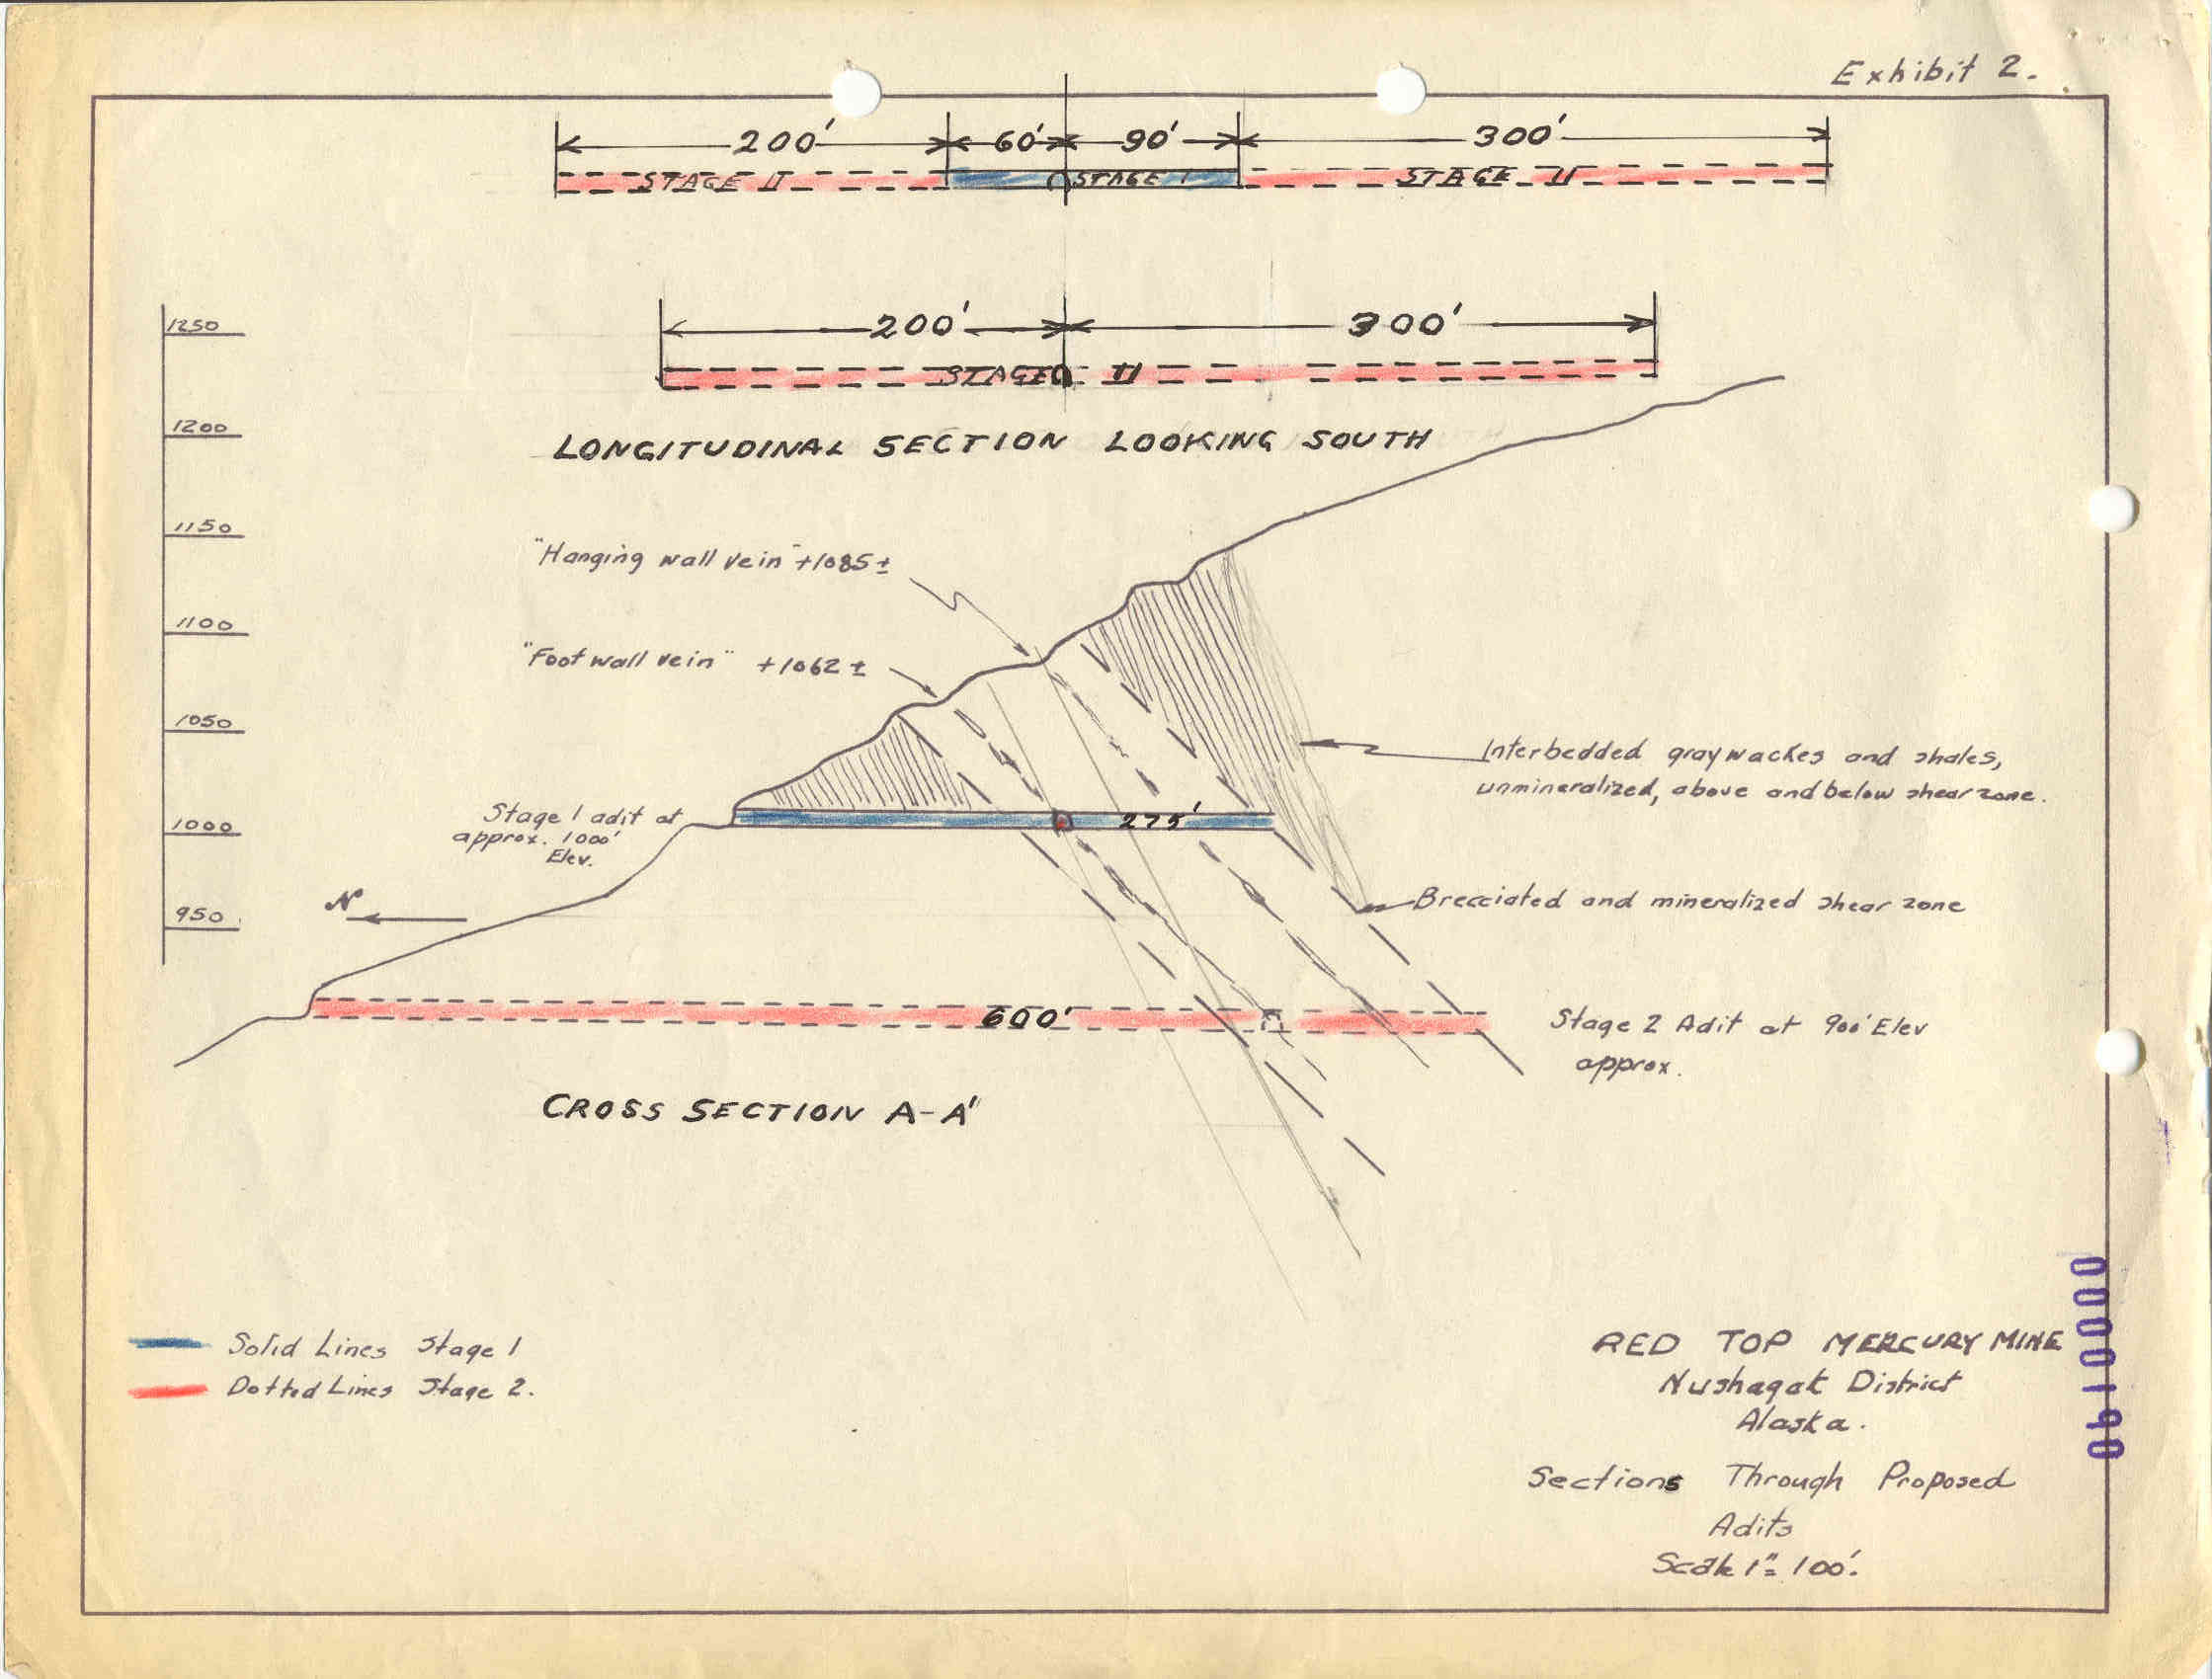 Exhibit 2.
200' 60' 90' 300'
STAGE II STAGE I STAGE II
200' 300'
STAGE II
LONGITUDINAL SECTION LOOKING SOUTH
1250
1200
1150
1100
1050
1000
950
"Hanging wall vein" +1085±
"Foot wall vein" +1062±
Interbedded graywackes and shales,
unmineralized, above and below shear zone.
Stage 1 adit at
approx. 1000'
Elev.
275'
N
Brecciated and mineralized shear zone
600'
Stage 2 Adit at 900' Elev
approx.
CROSS SECTION A-A'
Solid Lines Stage 1
Dotted Lines Stage 2.
RED TOP MERCURY MINE
Nushagak District
Alaska.
Sections Through Proposed
Adits
Scale 1"= 100'.
0000190